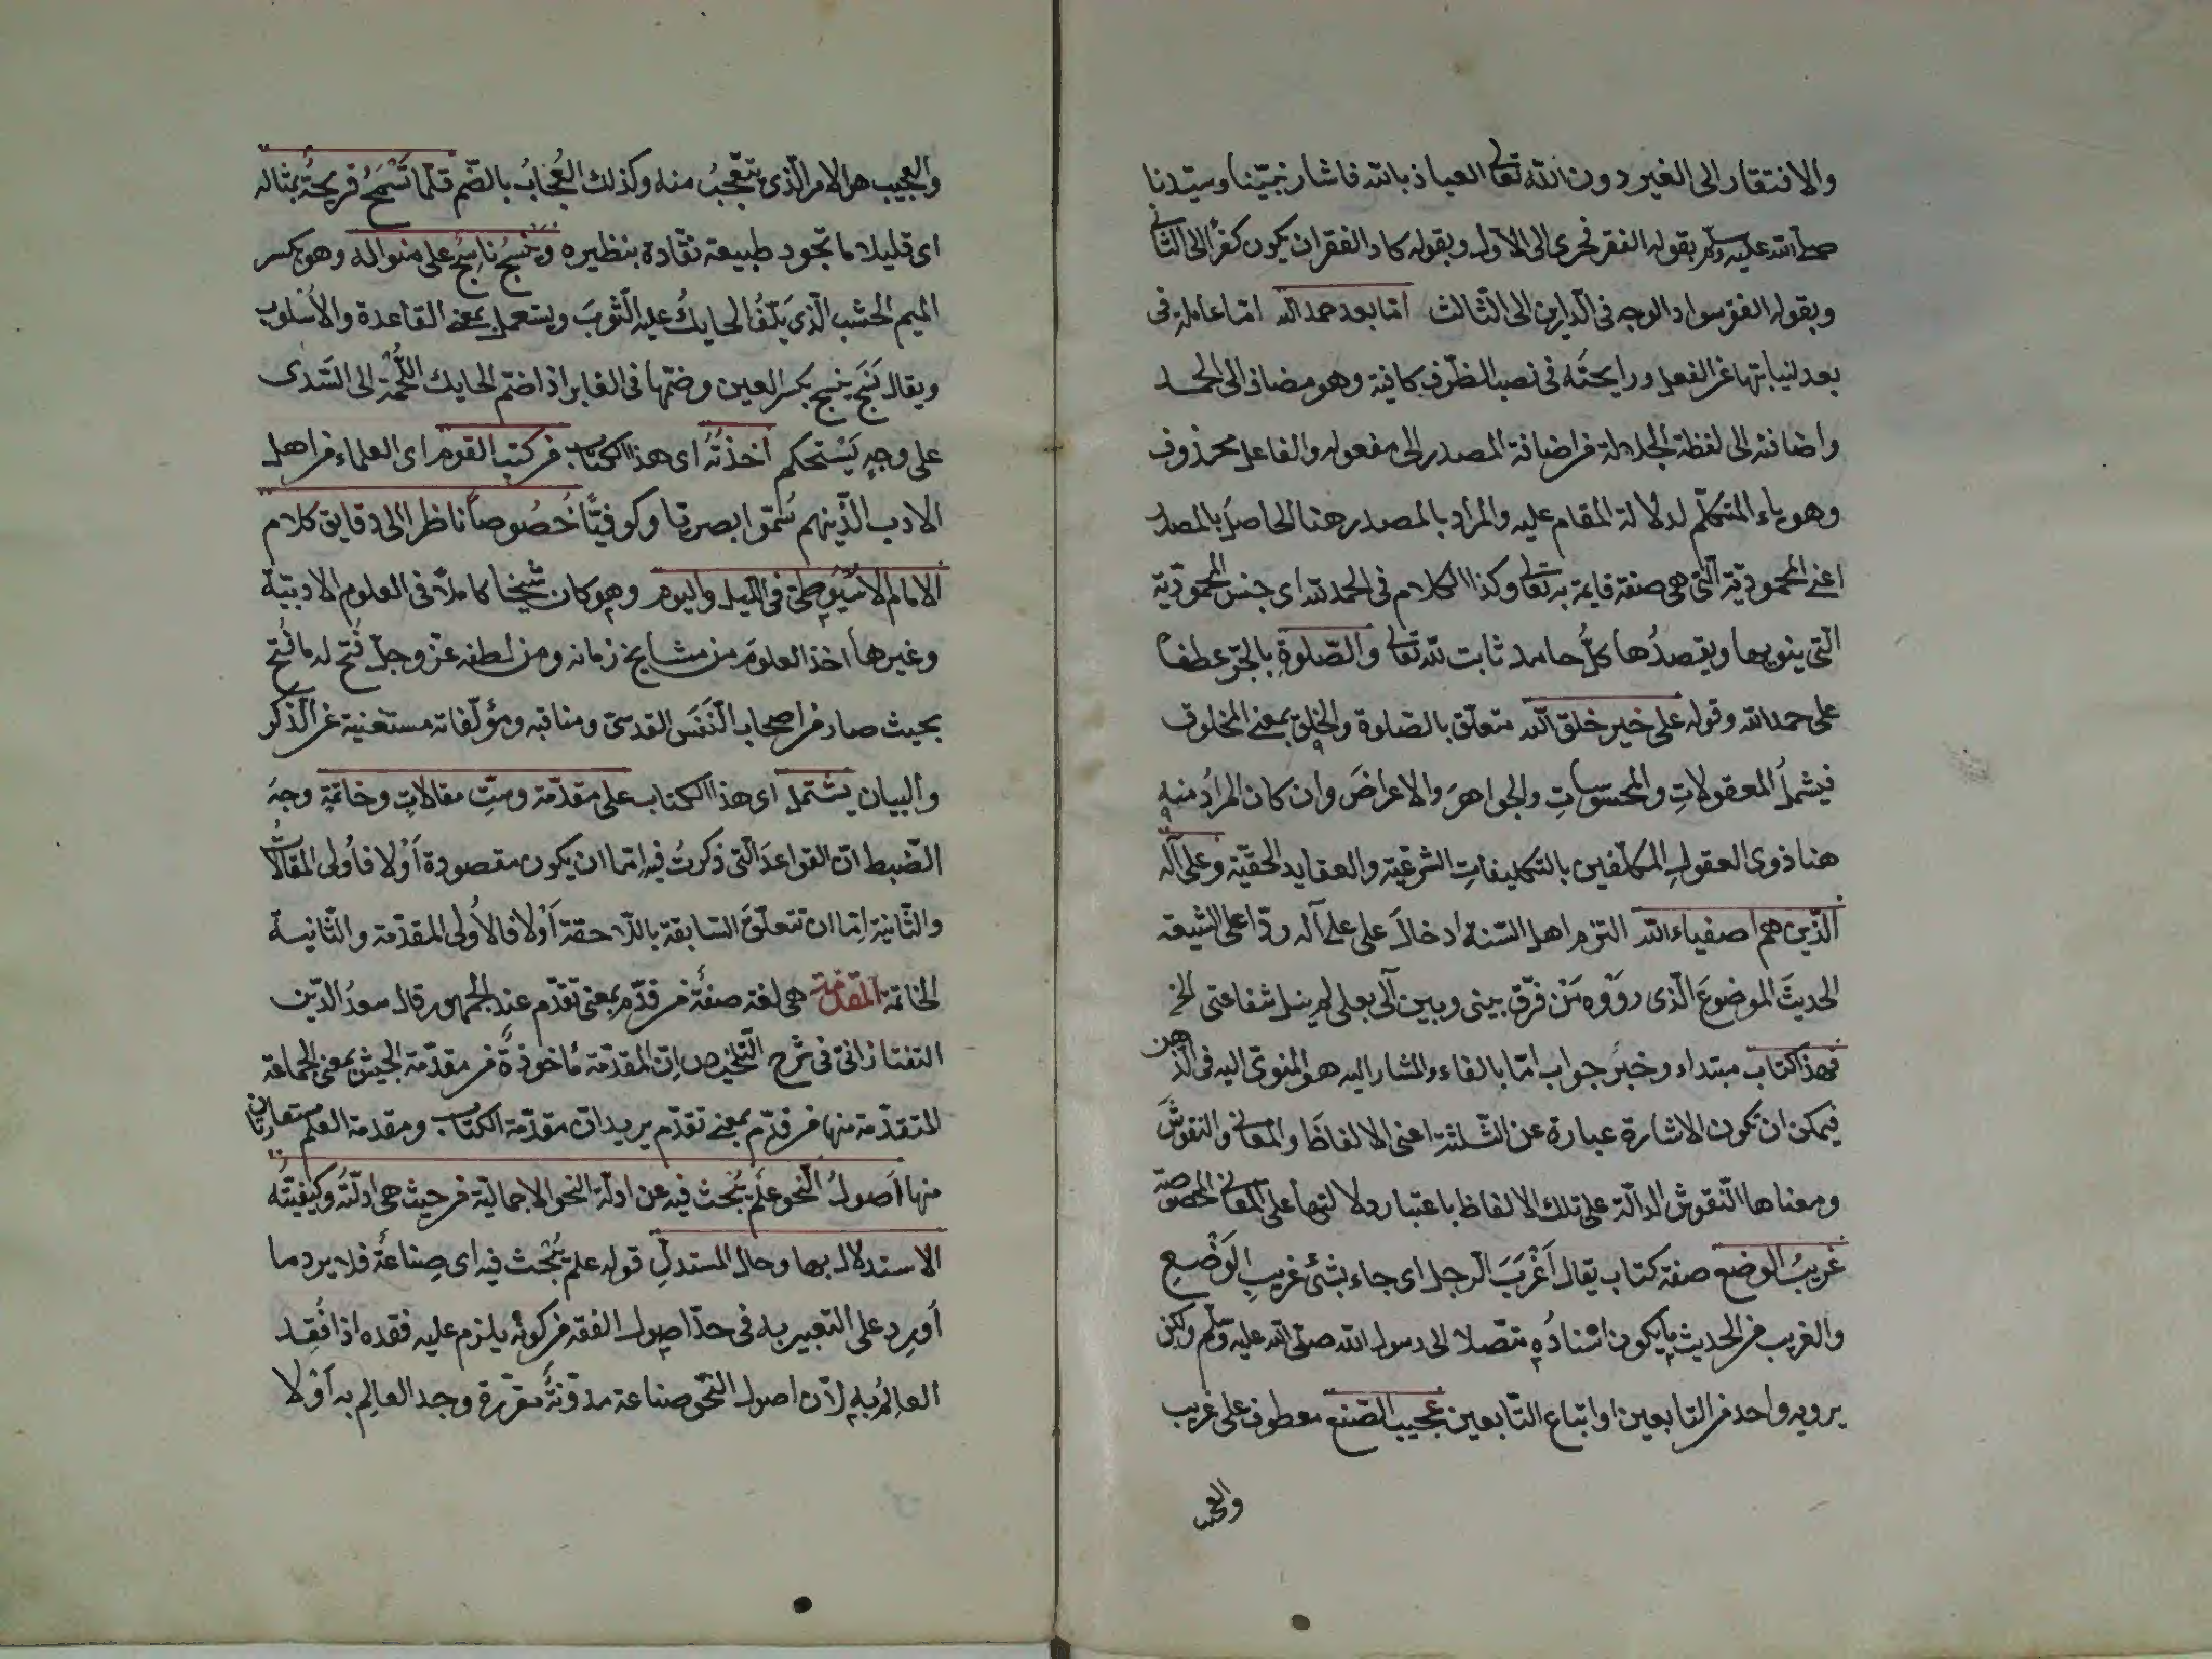 والافتقار الى الغير دون الله تعالى العياذ بالله فاشار نبيّنا وسيّدنا
صلى الله عليه وسلم بقوله الفقر فخرى الى الاول وبقوله كاد الفقر ان يكون كفرًا الى الثانى
وبقوله الفقر سواد الوجه فى الدارين الى الثالث امّا بعد حمد الله امّا عاملة فى
بعد لنيابتها عن الفعل ورايحته فى نصب الظرف كافية وهو مضاف الى الحمد
واضافته الى لفظة الجلالة من اضافة المصدر الى مفعوله والفاعل محذوف
وهو ياء المتكلّم لدلالة المقام عليه والمراد بالمصدر هنا الحاصل بالمصدر
اعنى المحموديّة التى هى صفة قايمة به تعالى وكذا الكلام فى الحمد لله اى جنس المحموديّة
التى ينويها ويقصدُها كلُّ حامد ثابت لله تعالى والصّلوةِ بالجرّ عطفا
على حمد الله وقوله على خير خلق الله متعلّق بالصلوة والخلق بمعنى المخلوق
فيشملُ المعقولاتِ والمحسوساتِ والجواهرَ والاعراضَ وان كان المرادُ منه
هنا ذوى العقولِ المكلّفين بالتكليفاتِ الشرعيّة والعقايد الحقيّة وعلى آله
الّذين هم اصفياء الله التزم اهل السّنة ادخالَ على على آله ردّا على الشيعة
الحديثَ الموضوعَ الّذى رَوَوْه مَنْ فرّق بينى وبين آلى بعلى لم ينل شفاعتى الخ
فهذا كتاب مبتداء وخبر جواب امّا بالفاء والمشار اليه هو المنوىّ اليه فى الذهن
فيمكن ان تكون الاشارة عبارة عن الثلثة اعنى الالفاظَ والمعانى والنقوشَ
ومعناها النّقوش الدالّة على تلك الالفاظ باعتبار دلالتها على المعانى المخصوصة
غريبُ الوضع صفة كتاب يقال اَغْرَبَ الرجل اى جاء بشئ غريبِ الوَضْعِ
والغريب من الحديث ما يكون اسنادُه متّصلا الى رسول الله صلّى الله عليه وسلّم ولكن
يرويه واحد من التابعين او اتباع التّابعين عجيب الصّنع معطوف على غريب
والعجيب
والعجيب هو الامر الّذى يتعجّبُ منه وكذلك العُجَابُ بالضّم قلّما تَسْمَحُ قريحةٌ بمثاله
اى قليلا ما تجود طبيعة نقّادة بنظيره ويَنسِجُ ناسِجٌ على منواله وهو بكسر
الميم الخشب الّذى يَلُفُّ الحايك عليه الثّوبَ ويستعمل بمعنى القاعدة والاُسْلوب
ويقال نَسَجَ ينسج بكسر العين وضمّها فى الغابر اذا ضمّ الحايك اللُّحْمَة الى السَّدَى
على وجهٍ يَسْتحكم أخذتُه اى هذا الكتاب من كتب القوم اى العلماء من اهل
الادب الّذينهم سُمّوا بصريّا وكوفيّا خُصُوصاً ناظرا الى دقايق كلام
الامام الاسيوطىّ فى الليل واليوم وهو كان شيخا كاملا فى العلوم الادبيّة
وغيرها اخذ العلومَ من مشايخ زمانه ومن لطفه عزّ وجلّ فُتح له ما فُتح
بحيث صار من اصحاب النَفَس القدسىّ ومناقبه ومؤلّفاته مستغنية عن الذّكر
والبيان يشتمل اى هذا الكتاب على مقدّمة وستِّ مقالاتٍ وخاتمةٍ وجهُ
الضّبط انّ القواعدَ الّتى ذكرتُ فيه امّا ان يكون مقصودة اَوْ لا فاُولى المقالات
والثّانية امّا ان تتعلّقَ السّابقة باللاحقة اَوْ لا فالاُولى المقدّمة والثّانية
الخاتمة المقدّمة هى لغة صفةٌ من قدّم بمعنى تقدّم عند الجمهور قال سعدُ الدّين
التفتازانىّ فى شرح التّلخيص انّ المقدّمة مأخوذةٌ من مقدّمة الجيش بمعنى الجماعة
المتقدّمة منها من قدّم بمعنى تقدّم يريد ان مقدّمة الكتاب ومقدمة العلم مستعارتان
منها اُصولُ النّحو علم يُبْحث فيه عن ادلّة النحو الاجماليّة من حيث هى ادلّتُه وكيفيّتُه
الاستدلال بها وحالِ المستدلِّ قوله علم يُبْحث فيه اى صِناعةٌ فلا يرد ما
اُورد على التعبير به فى حدّ اصول الفقه من كونِه يلزم عليه فقده اذا فُقِد
العالِمُ به لانّ اصول النّحو صناعة مدوّنةٌ مقرّرة وجد العالِم به اَوْ لا